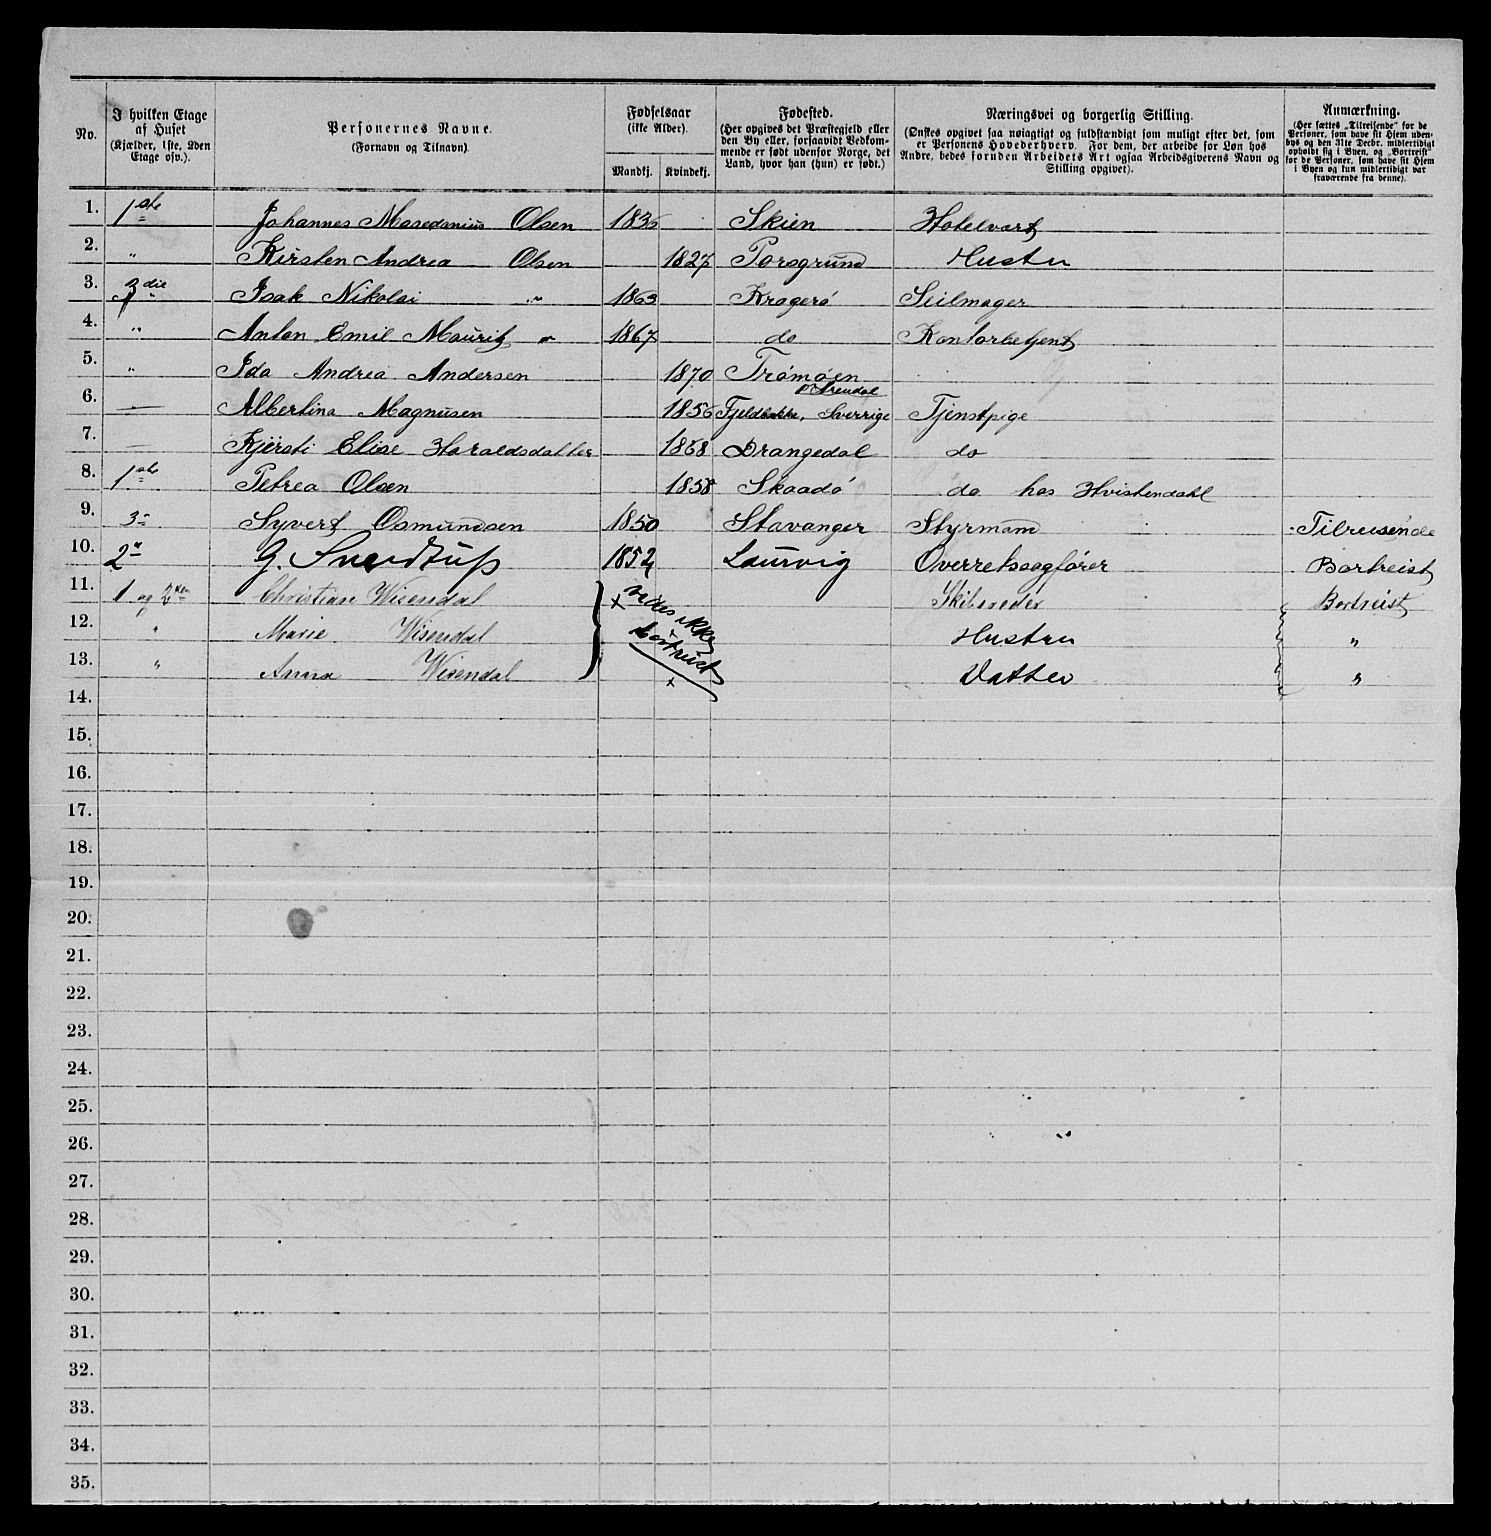 No.
I hvilken Etage af Huset (Kjælder, 1ste, 2den Etage osv.).
Personernes Navne. (Fornavn og Tilnavn).
Fødselsaar (ikke Alder).
Mandkj. Kvindekj.
Fødested. (Her opgives det Præstegjeld eller den By eller, forsaavidt Vedkommende er født udenfor Norge, det Land, hvor han (hun) er født.)
Næringsvei og borgerlig Stilling. (Ønskes opgivet saa nøiagtigt og fuldstændigt som muligt efter det, som er Personens Hovederhverv. For dem, der arbeide for Løn hos Andre, bedes foruden Arbeidets Art ogsaa Arbeidsgiverens Navn og Stilling opgivet).
Anmærkning. (Her sættes „Tilreisende" for de Personer, som have sit Hjem udenbys og den 31te Decbr. midlertidigt opholdt sig i Byen, og „Bortreist" for de Personer, som have sit Hjem i Byen og kun midlertidigt var fraværende fra denne).
1. 1ste Johannes Olsen Skien Hotelvært
2. " Kirsten Andrea Olsen 1827 Porsgrund Hustru
3. 3die " Isak Nikolai " 1863 Kragerø Seilmager
4. " Anton Emil Mauritz " 1867 do Kontorbetjent
5. " Ida Andrea Andersen 1870 Trømøen pr Arendal
6. — Albertina Magnusen 1856 Fjeldbakka, Sverrige Tjenstpige
7. — Kjersti Elise Haraldsdatter 1868 Drangedal do
8. 1ste Petrea Olsen 1858 Skaadø do hos Hvistendahl
9. 3- Syvert Osmundsen 1850 Stavanger Styrmand Tilreisende
10. 2" G. 1852 Laurvig Overretssagfører Bortreist
11. 1 og 2den Christian Wisendal Skibsreder Bortreist
12. " Marie Wisendal Hustru "
13. " Anna Wisendal Datter "
x vides ikke bortreist x
14.
15.
16.
17.
18.
19.
20.
21.
22.
23.
24.
25.
26.
27.
28.
29.
30.
31.
32.
33.
34.
35.